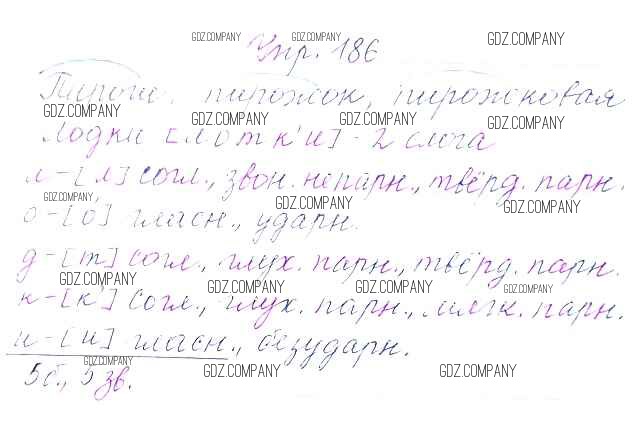 GDZ.COMPANY GDZ.COMPANY GDZ.COMPANY
Упр. 186
Пироги, пирожок, пирожковая
GDZ.COMPANY GDZ.COMPANY GDZ.COMPANY GDZ.COMPANY
Лодки [лотк'и] - 2 слога
л - [л] согл., звон. непарн., твёрд. парн.
GDZ.COMPANY GDZ.COMPANY GDZ.COMPANY
о - [о́] гласн., ударн.
д - [т] согл., глух. парн., твёрд. парн.
GDZ.COMPANY GDZ.COMPANY GDZ.COMPANY GDZ.COMPANY
к - [к'] согл., глух. парн., мягк. парн.
и - [и] гласн., безударн.
GDZ.COMPANY GDZ.COMPANY GDZ.COMPANY
5 б., 5 зв.